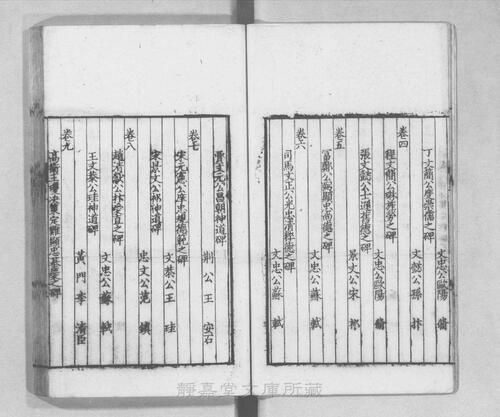 文忠公歐陽脩
丁文簡公度崇儒之碑
文懿公孫抃
卷四
程文簡公琳旌勞之碑
文忠公歐陽脩
張文懿公士遜舊德之碑
景文公宋祁
卷五
富鄭公弼顯忠尚德之碑
文忠公蘇軾
卷六
司馬文正公光忠清粹德之碑
文忠公蘇軾
賈文元公昌朝神道碑
荆公王安石
卷七
宋元憲公庠忠規德範之碑
文恭公王珪
宋景文公祁神道碑
忠文公范鎮
卷八
趙清獻公抃愛直之碑
文忠公蘇軾
王文恭公珪神道碑
黃門李清臣
卷九
高衛王瓊決策定難顯忠基慶之碑
靜嘉堂文庫所藏